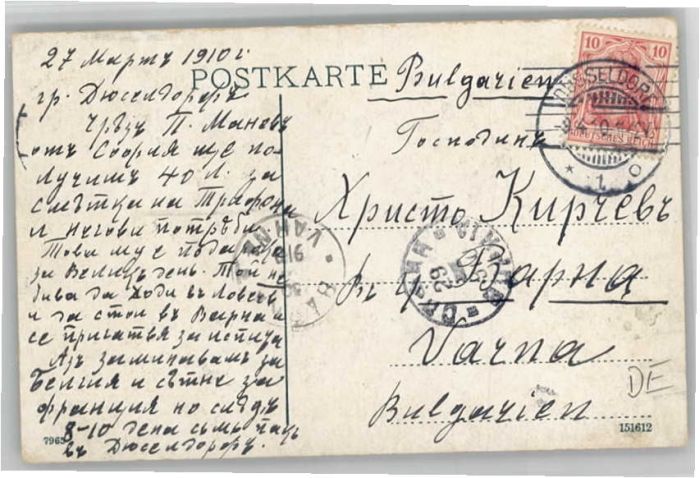 27 Мартъ 1910 г.
POSTKARTE
гр. Дюселдорфъ
Чрѣзъ П. Маневъ
отъ София ще по
лучимъ 40 л. за
смѣтка на
и негови потрѣби.
Това му е подарка
за Великъ день. Той не
бива да ходи въ Ловечъ
и да стои въ Варна и
се приготвя за испита
Азъ заминавамъ за
Белгия и сѣтне за
Франция но слѣдъ
8-10 дена съмь пакъ
въ Дюселдорфъ.
Bulgarien
Господинъ
Христо Кирчевъ
въ гр. Варна
Varna
Bulgarien
DE
10 10
DEUTSCHES REICH
DÜSSELDORF
* 1 o
ВАРНА
VARNA
29
7963
151612